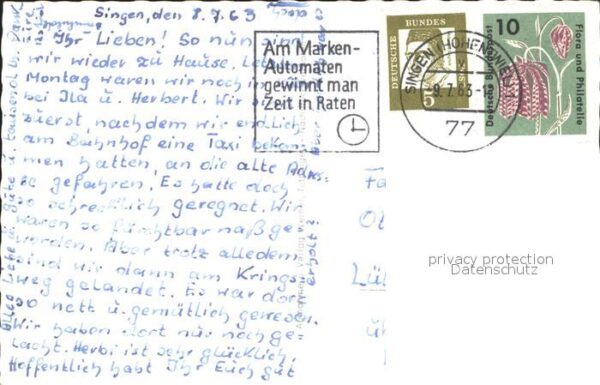 Singen, den 8.7.63
Ihr Lieben! So nun sind
wir wieder zu Hause.
Montag waren wir noch in
bei Ila u. Herbert. Wir
zuerst, nachdem wir endlich
am Bahnhof eine Taxi bekom-
men hatten, an die alte Adres-
se gefahren. Es hatte doch
so schrecklich geregnet. Wir
waren so furchtbar naß ge-
worden. Aber trotz alledem
sind wir dann am Krings-
weg gelandet. Es war dort
so nett u. gemütlich gewesen.
Wir haben dort nur noch ge-
lacht. Herbi ist sehr glücklich.
Hoffentlich habt Ihr Euch gut
erholt?
Alles Liebe u. Gute u. tausend Dank
Am Marken-
Automaten
gewinnt man
Zeit in Raten
SINGEN (HOHENTWIEL)
-9.7.63-
77
DEUTSCHE BUNDESPOST
5
10
Flora und Philatelie
Deutsche Bundespost
privacy protection
Datenschutz